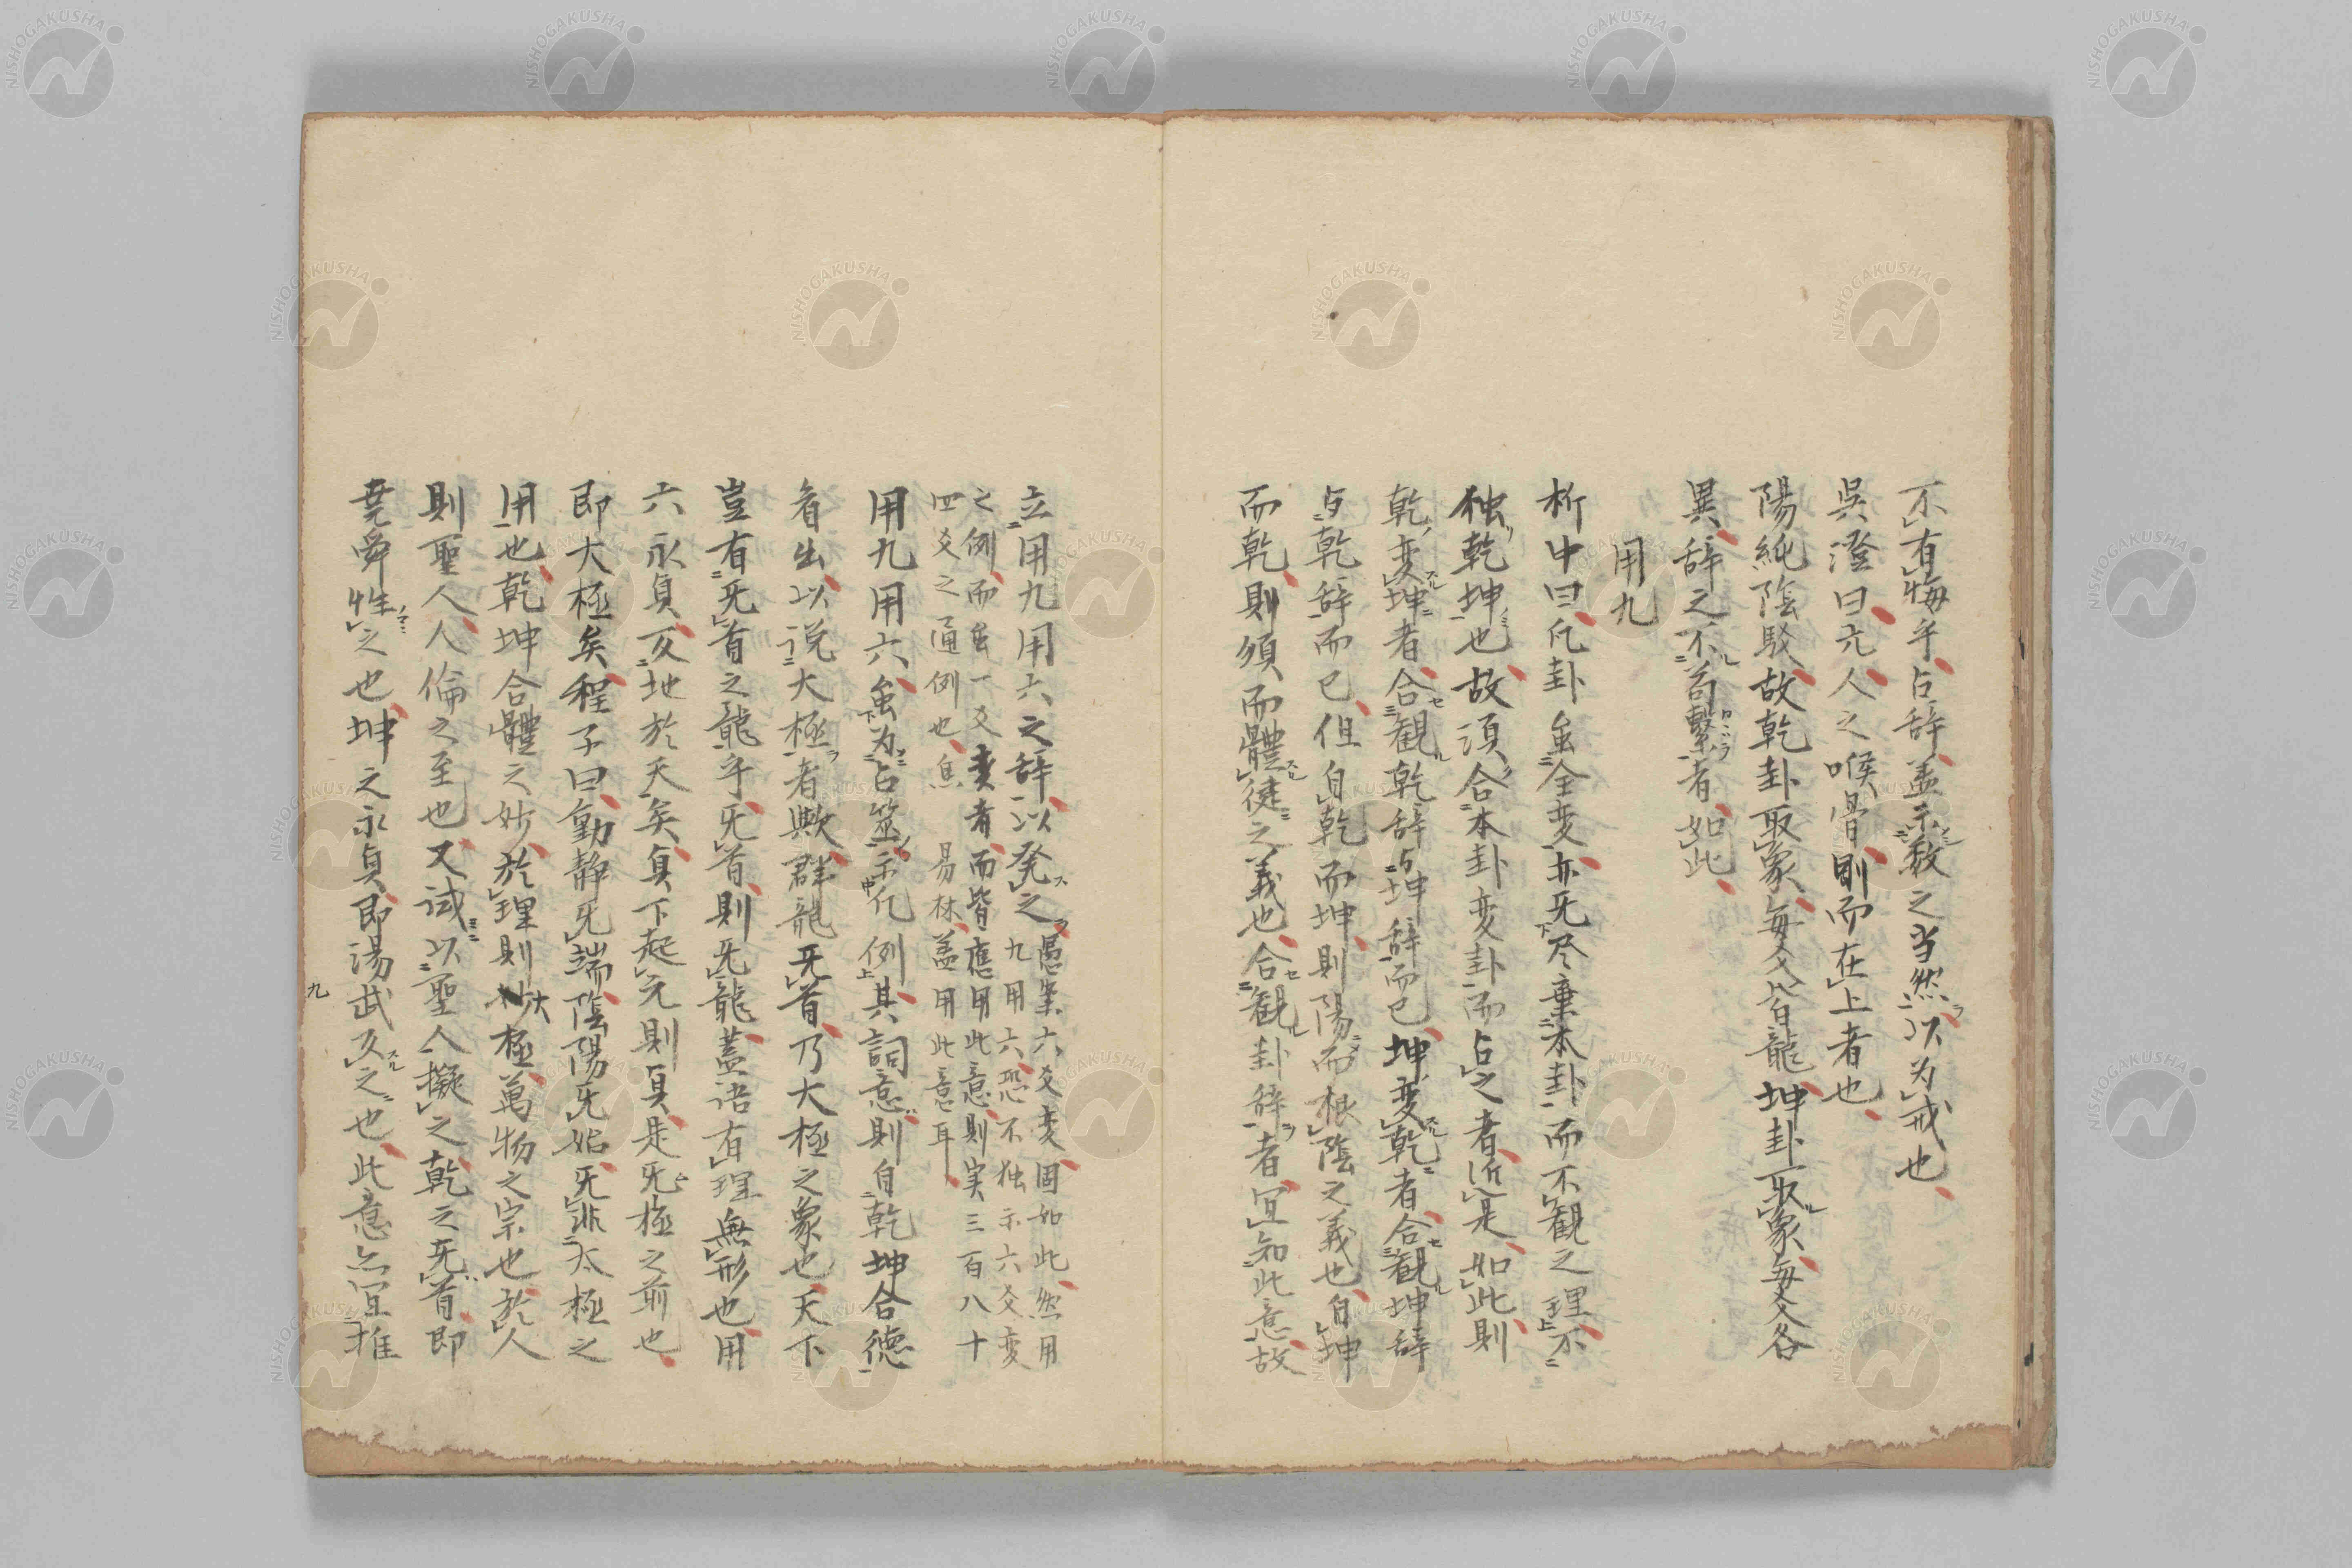 不有悔乎占辞盖示教之当然以为戒也
吳澄曰亢人之喉骨剛而在上者也
陽純陰駁故乾卦取象每爻皆龍坤卦取象每爻各
異辞之不苟繫者如此
用九
析中曰凡卦虽全变亦无尽棄本卦而不観之理不
独乾坤也故須合本卦变卦而占之者近是如此則
乾变坤者合観乾辞与坤辞而已坤变乾者合観坤辞
与乾辞而已但自乾而坤則陽而根陰之義也自坤
而乾則須而體健之義也合観卦辞者宜知此意故
立用九用六之辞以発之
愚案六爻变固如此然用
九用六恐不独示六爻变
之例而虽一爻变者而皆應用此意則実三百八十
四爻之通例也焦 易林盖用此意耳
用九用六虽为占筮示凡例其詞意則自乾坤合德
看出以说大極者歟群龍无首乃大極之象也天下
豈有无首之龍乎无首則无龍蓋语有理無形也用
六永貞反地於天矣貞下起元則貞是无極之前也
即大極矣程子曰動静无端陰陽无始无非太極之
用也乾坤合體之妙於理則大極萬物之宗也於人
則聖人人倫之至也又试以聖人擬之乾之无首即
堯舜性之也坤之永貞即湯武反之也此意亦宜推
九
NISHOGAKUSHA